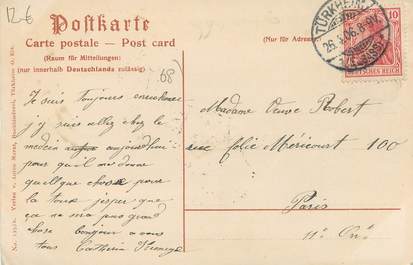 12 €
Postkarte
Carte postale — Post card
(Raum für Mitteilungen)
(nur innerhalb Deutschlands zulässig)
Nur für Adresse
TÜRKHEIM
26.3.06.
10
DEUTSCHES REICH
(68)
Je suis toujours enrouhée
j'y suis allez chez le
medecin aujourdhui
pour qu'il me donne
quelque chose pour
la toux j'esper que
ça ne sera pas grand
chose bonjour a vous
tous Catherine
Madame Robert
rue folie Méricourt 100
Paris
11e